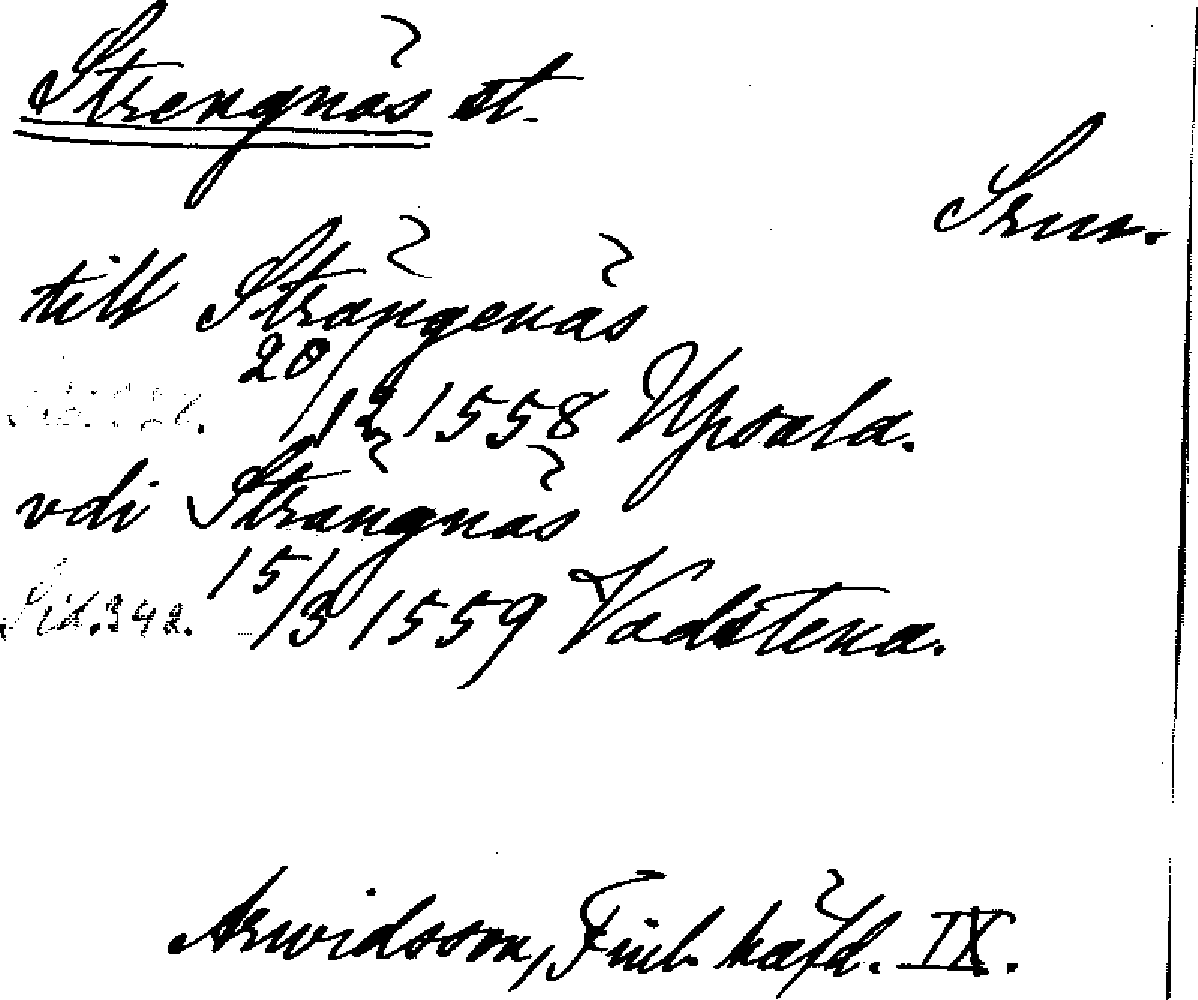 Strengnäs st.
Srm.
till Strängenäs
20/12 1558 Upsala.
vdi Strängnäs
Sid. 342. 15/3 1559 Vadstena.
Arwidsson, Finl. häfd. IX.